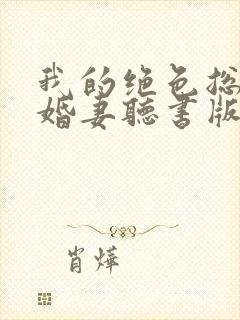 我的绝色总
婚妻聽書版
肖烨